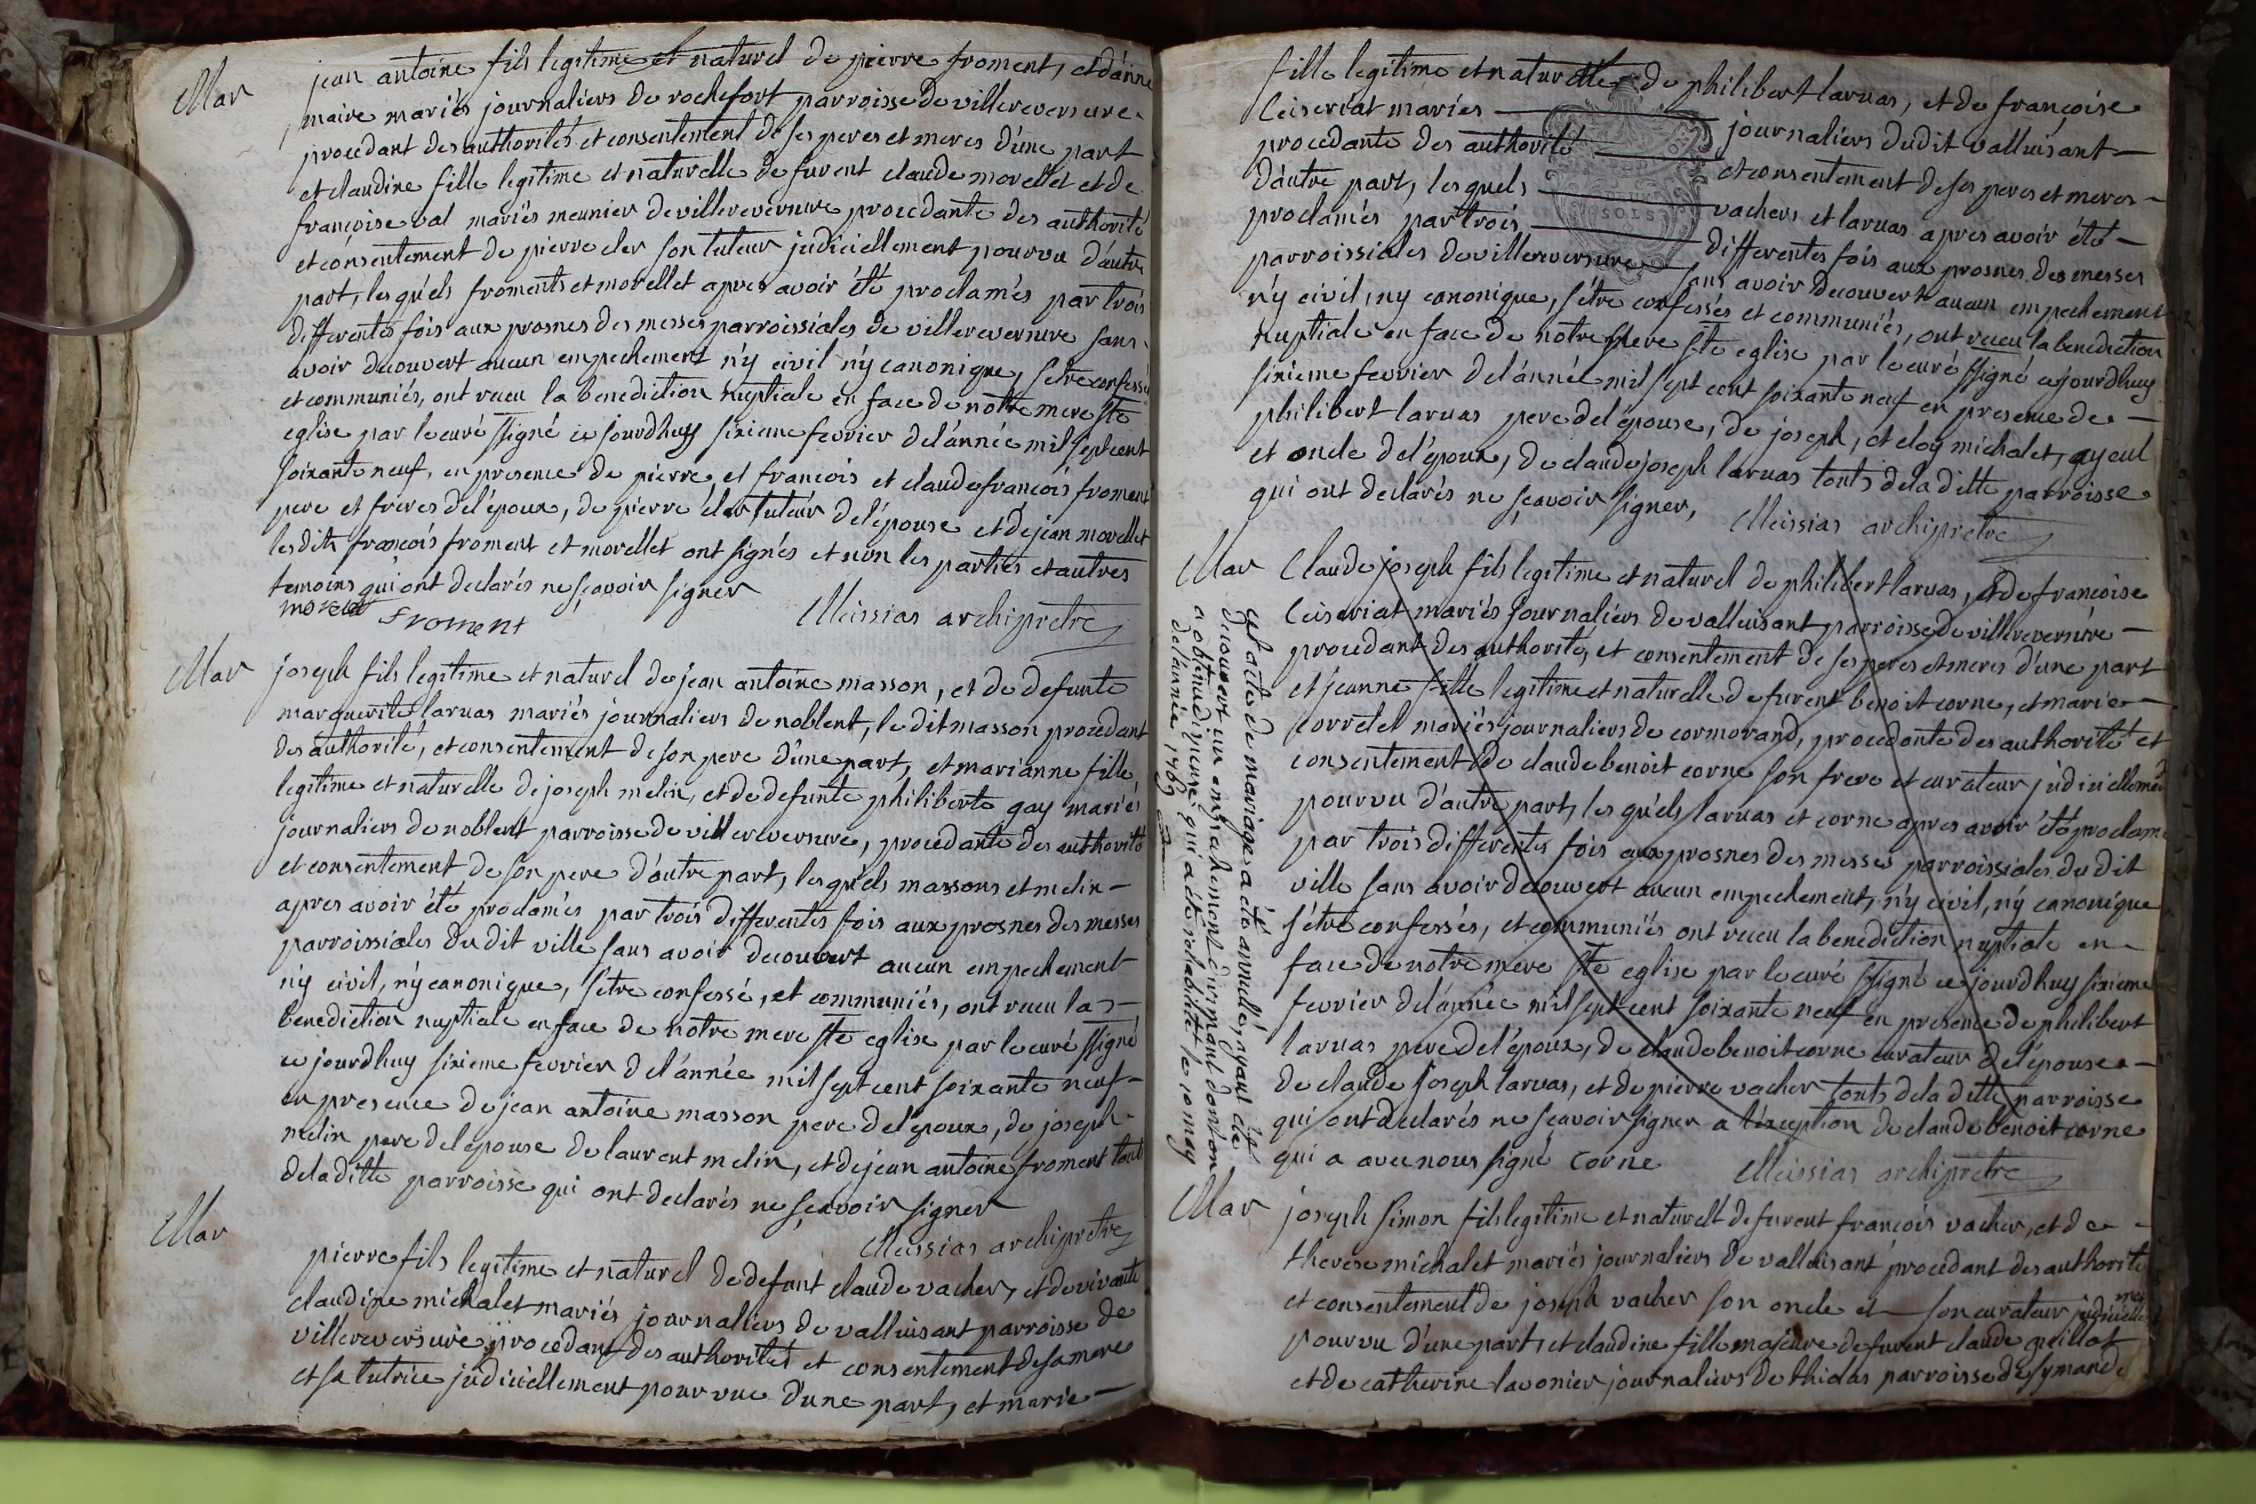 Mar
jean antoine fils legitime et naturel de pierre froment, et d'anne
maire mariés journaliers de rochefort parroisse de villereversure
procedant des authorités et consentement de ses peres et meres d'une part
et claudine fille legitime et naturelle de furent claude morellet et de
françoise val mariés meunier de villereversure procedante des authorité
et consentement de pierre cler son tuteur judiciellement pourvu d'autre
part, lesquels froments et morellet apres avoir été proclamés par trois
differentes fois aux prosnes des messes parroissiales de villereversure sans
avoir decouvert aucun empechement n'y civil n'y canonique, s'etre confessés
et communiés, ont recu la benediction nuptiale en face de notre mere ste
eglise par le curé ssigné ce jourdhuy sixieme fevrier de l'année mil sept cent
soixante neuf, en presence de pierre et françois et claude françois froment
pere et freres de l'époux, de pierre cler tuteur de l'épouse et de jean morellet
lesdits françois froment et morellet ont signés et non les parties et autres
temoins qui ont declarés ne sçavoir signer
morellet froment Meissias archipretre
Mar
joseph fils legitime et naturel de jean antoine masson, et de defunte
marguerite laruas mariés journaliers de noblent, le dit masson procedant
des authorité, et consentement de son pere d'une part, et marianne fille
legitime et naturelle de joseph melin, et de defunte philiberte gay mariés
journaliers de noblent parroisse de villereversure, procedante des authorité
et consentement de son pere d'autre part, lesquels massons et melin
apres avoir été proclamés par trois differentes fois aux prosnes des messes
parroissiales du dit ville sans avoir decouvert aucun empechement
n'y civil, n'y canonique, s'etre confessé, et communiés, ont recu la
benediction nuptiale en face de notre mere ste eglise par le curé ssigné
ce jourdhuy sixieme fevrier de l'année mil sept cent soixante neuf
en presence de jean antoine masson pere de l'epoux, de joseph
melin pere de lepouse de laurent melin, et de jean antoine froment tout
de la ditte parroisse qui ont declarés ne sçavoir signer
Meissias archipretre
Mar
pierre fils legitime et naturel de defunt claude vacher, et de vivante
claudine michalet mariés journaliers de valluisant parroisse de
villereversure procedant des authorités et consentement de sa mere
et sa tutrice judiciellement pourvue d'une part, et marie
fille legitime et naturelle de philibert laruas, et de françoise
Ceiseriat mariés journaliers dudit valluisant
procedante des authorité et consentement de ses peres et meres
d'autre part, lesquels vachers et laruas apres avoir été
proclamés par trois differentes fois aux prosnes des messes
parroissiales de villereversure sans avoir decouvert aucun empechement
n'y civil, ny canonique, s'étre confessés et communiés, ont recu la benediction
nuptiale en face de notre mere ste eglise par le curé ssigné cejourdhuy
sixieme fevrier de l'année mil sept cent soixante neuf en presence de
philibert laruas pere de l'épouse, de joseph, et eloy michalet, ayeul
et oncle de l'époux, de claude joseph laruas touts de la ditte parroisse
qui ont declarés ne sçavoir signer, Meissias archipretre
Mar
Claude joseph fils legitime et naturel de philibert laruas, et de françoise
Ceiseriat mariés journaliers de valluisant parroisse de villereversure
procedant des authorité, et consentement de ses peres et meres d'une part
et jeanne fille legitime et naturelle de furent benoit corne, et marie
corretel mariés journaliers de cormorand, procedante des authorité et
consentement de claude benoit corne son frere et curateur judiciellement
pourvu d'autre part, lesquels laruas et corne apres avoir été proclamé
par trois differentes fois aux prosnes des messes parroissiales du dit
ville sans avoir decouvert aucun empechement, n'y civil, n'y canonique
s'étre confessés, et communiés ont recu la benediction nuptiale en
face de notre mere ste eglise par le curé ssigné ce jourdhuy sixieme
fevrier de l'année mil sept cent soixante neuf en presence de philibert
laruas pere de l'époux, de claude benoit corne curateur de l'épouse
de claude joseph laruas, et de pierre vacher touts de la ditte parroisse
qui ont declarés ne sçavoir signer a l'exception de claude benoit corne
qui a avec nous signé corne Meissias archipretre
cet acte de mariage a été annullé, ayant été
decouvert un empechement dirimant dont on
a obtenu dispense, qui a été rehabilité le 10 may
de l'année 1769
Mar
joseph simon fils legitime et naturel de furent françois vacher, et de
therese michalet mariés journaliers de valluisant procedant des authorité
et consentement de joseph vacher son oncle et son curateur judiciellement
pourvu d'une part, et claudine fille majeure de furent claude guillot
et de catherine lavonier journaliers de thiolas parroisse de symande